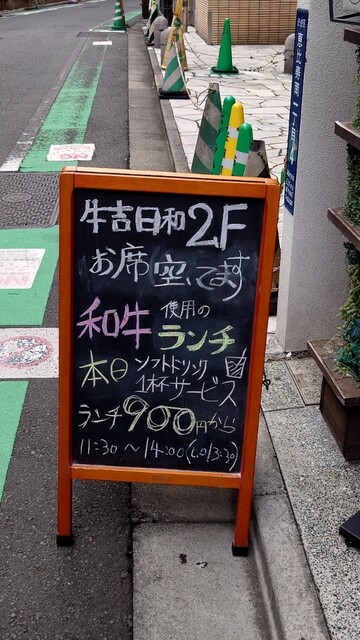 牛吉日和 2F
お席 空いてます
和牛 使用の
ランチ
本日 ソフトドリンク
1杯サービス
ランチ 900円から
11:30〜14:00(L.O13:30)